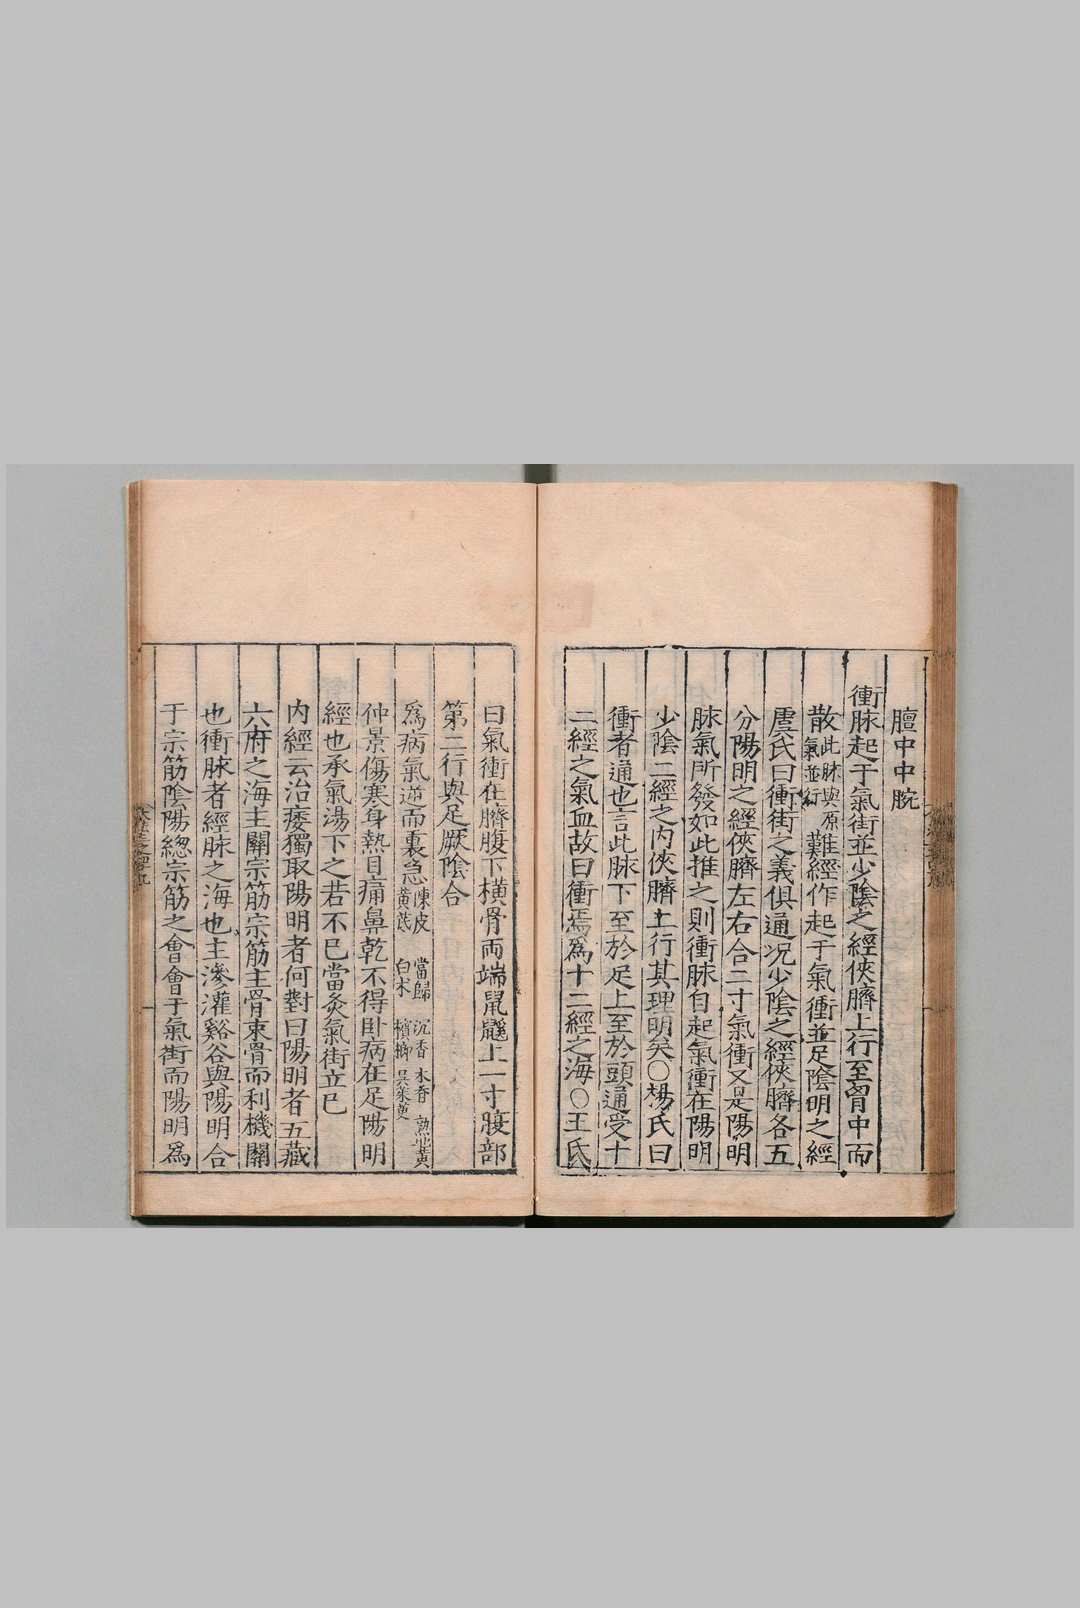 膻中中腕
衝脉起于氣街並少陰之經俠臍上行至胷中而
散此脉與原氣並行難經作起于氣衝並足陰明之經
虞氏曰衝街之義俱通况少陰之經俠臍各五
分陽明之經俠臍左右合二寸氣衝又是陽明
脉氣所發如此推之則衝脉自起氣衝在陽明
少陰二經之内俠臍上行其理明矣○楊氏曰
衝者通也言此脉下至於足上至於頭通受十
二經之氣血故曰衝焉為十二經之海○王氏
曰氣衝在臍腹下横骨両端鼠鼷上一寸腹部
第二行與足厥陰合
為病氣逆而裏急陳皮 當歸 沉香 木香 熟地黄 黄芪 白术 檳榔 吳茱萸
仲景傷寒身熱目痛鼻乾不得卧病在足陽明
經也承氣湯下之若不已當灸氣街立已
内經云治痿獨取陽明者何對曰陽明者五藏
六府之海主閏宗筋宗筋主骨束骨而利機關
也衝脉者經脉之海也主滲灌谿谷與陽明合
于宗筋陰陽總宗筋之會會于氣街而陽明為